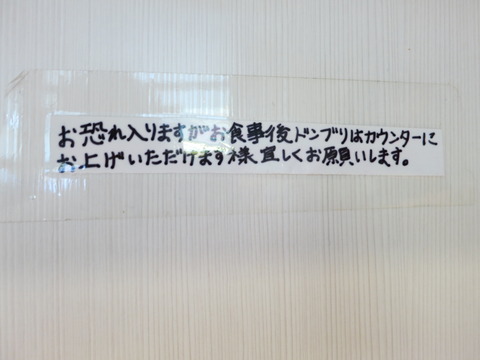 お恐れ入りますがお食事後ドンブリはカウンターに
お上げいただけます様宜しくお願いします。